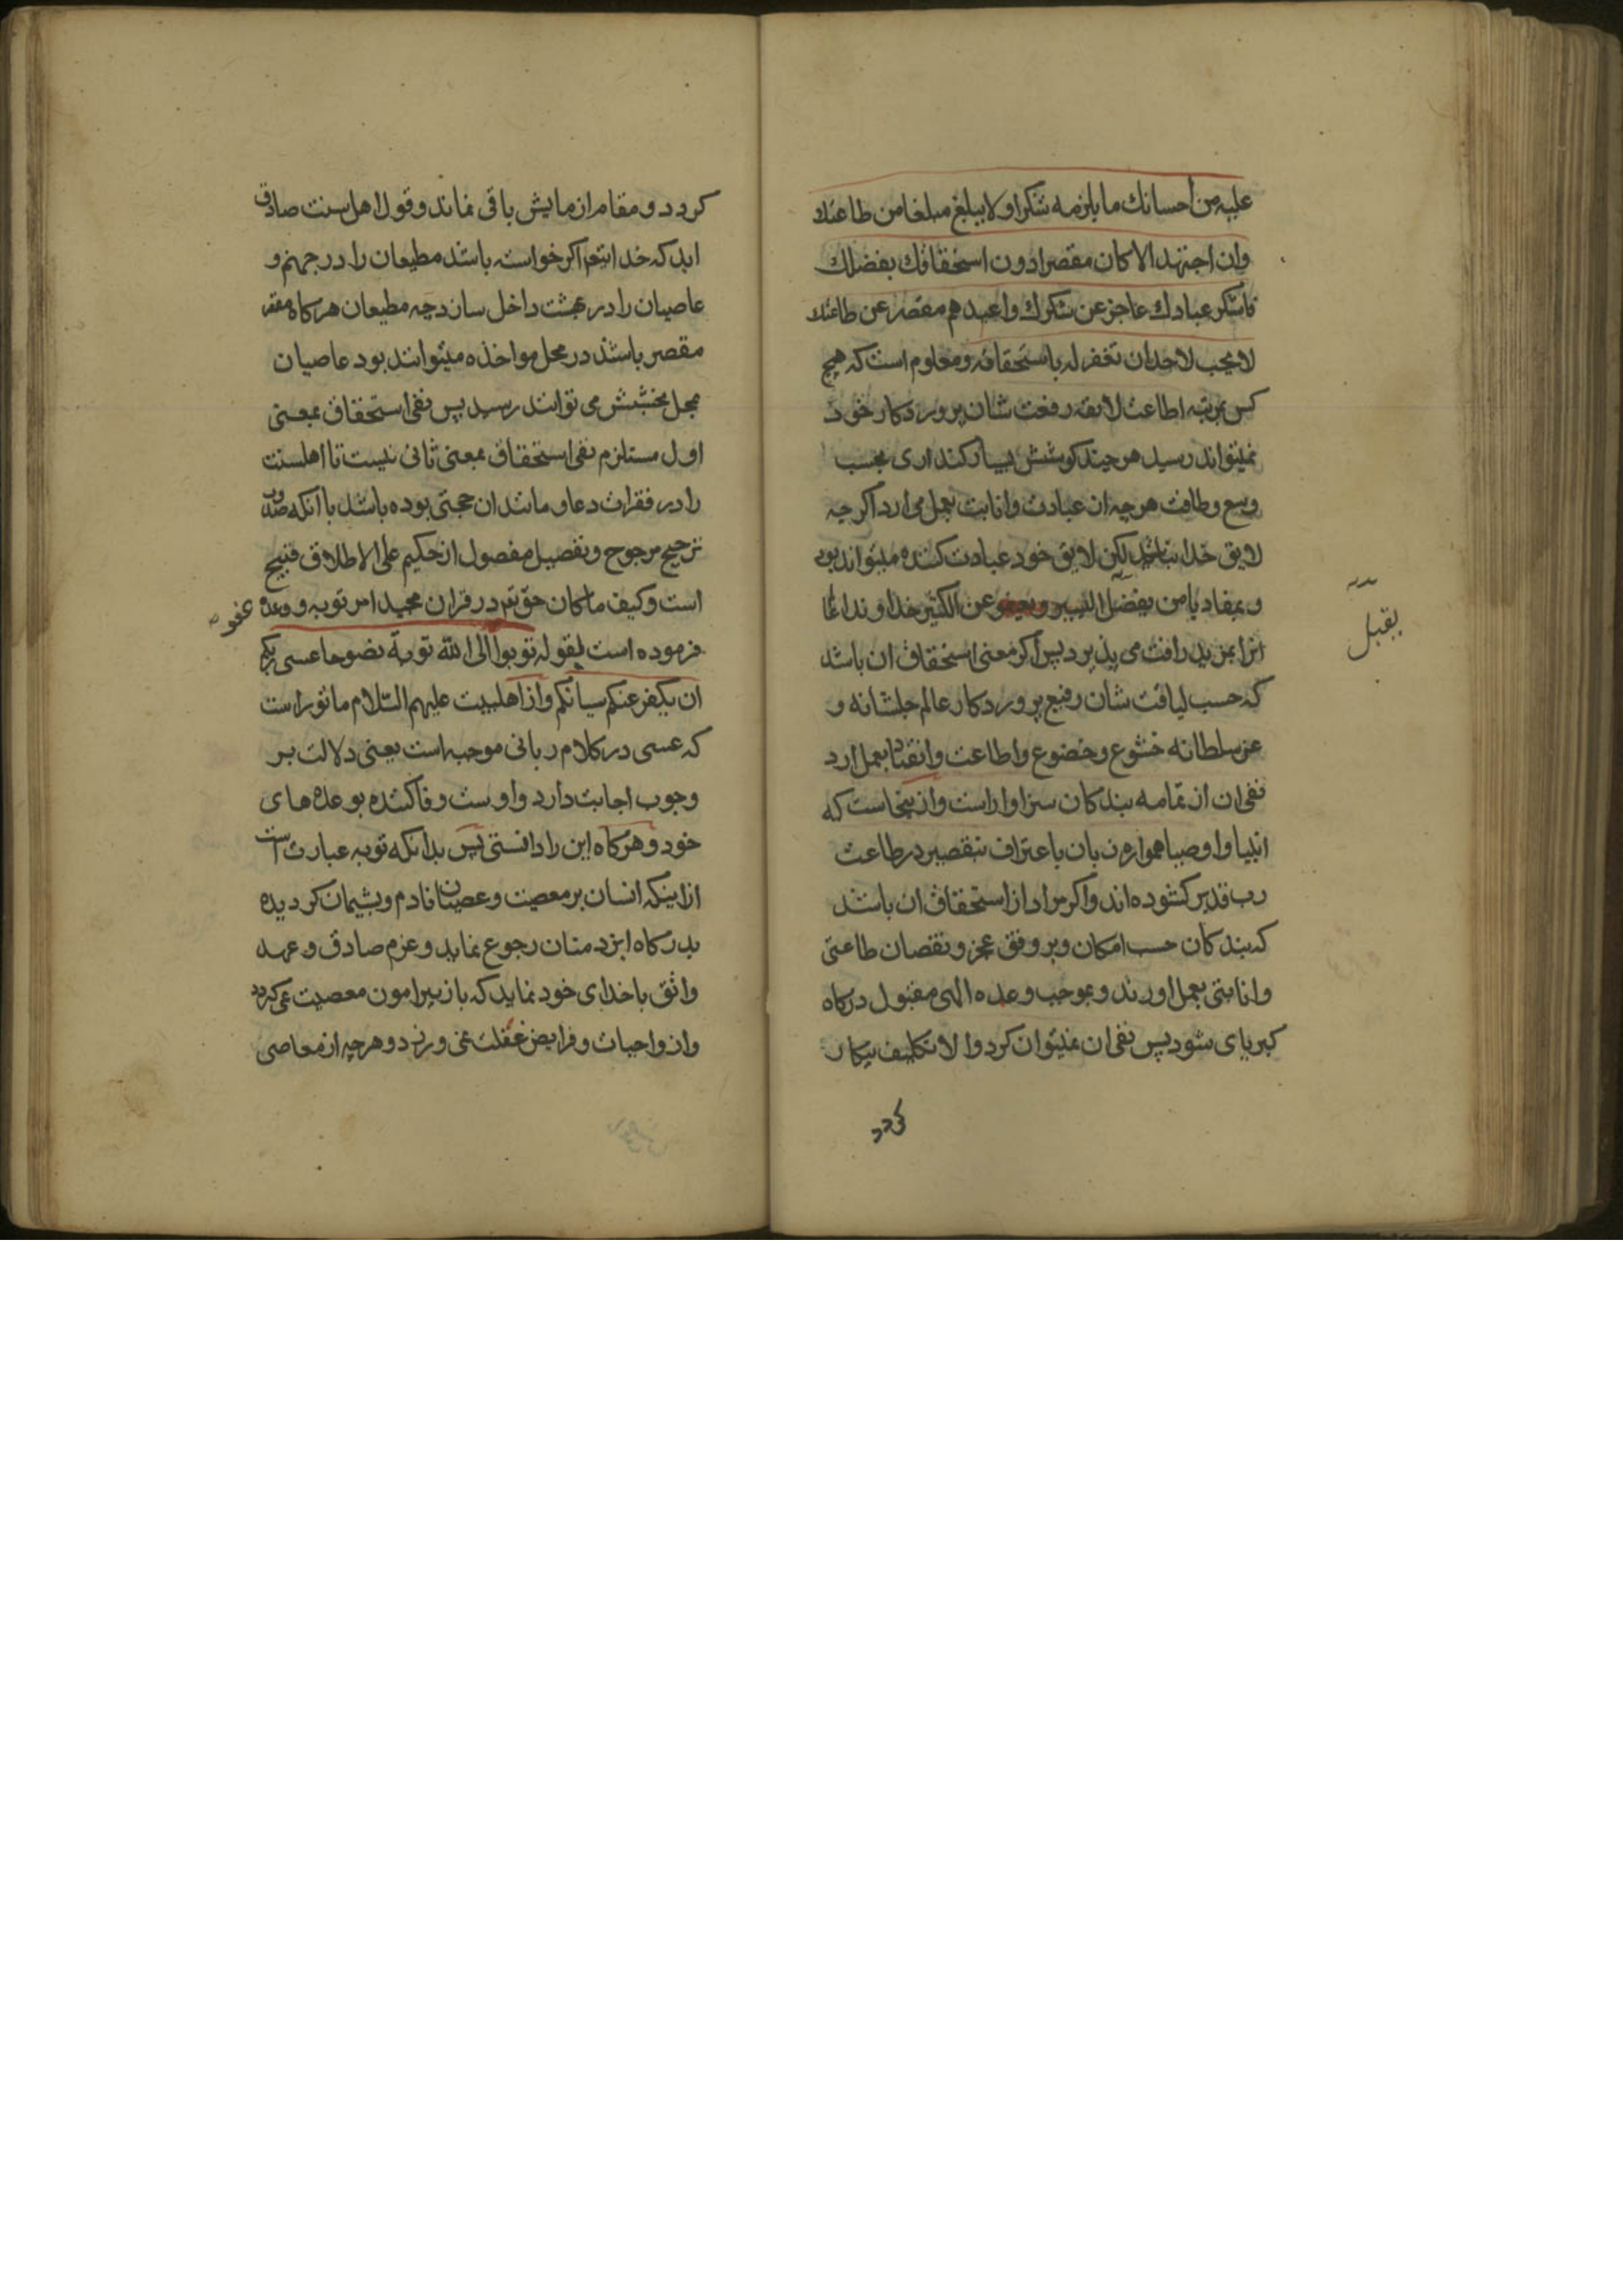 علیه من احسانك ما یلزمه شکرا و لا یبلغ مبلغا من طاعتك
وان اجتهد الا کان مقصرا دون استحقاقك بفضلك
فاشکر عبادك عاجز عن شکرك واعبدهم مقصر عن طاعتك
لا یجب لاحد ان تغفر له باستحقاقه و معلوم است که هیچ
کس بمرتبه اطاعت لایقه رفعت شان پرورد کار خود
نمیتواند رسید هر چند کوشش بسیار کند اری بحسب
وسع و طاقت هر چه از عبادت وانابت بعمل می ارد اکر چه
لایق خدا نباشد لیکن لایق خود عبادت کننده میتواند بود
و بمفاد یا من یقبل الیسیر و یعفو عن الکثیر خداوند اعلا
انرا بمزید رافت می پذیرد پس اکر معنی استحقاق ان باشد
که حسب لیاقت شان رفیع پرورد کار عالم جلشانه و
عز سلطانه خشوع و خضوع و اطاعت وانقیاد بعمل ارد
نفی ان از تمامه بند کان سزاوار است واز ینجاست که
انبیا و اوصیا همواره زبان باعتراف بتقصیر در طاعت
رب قدیر کشوده اند واکر مراد از استحقاق ان باشد
که بند کان حسب امکان و بر وفق عجز و نقصان طاعتی
وانابتی بعمل اورند و بموجب وعده الهی مقبول درکاه
کبریای شود پس نفی ان نمیتوان کرد والا تکلیف بیکار
کردد
یقبل
کردد و مقام ازمایش باقی نماند و قول اهل سنت صادق
اید که خدا یتعم اکر خواسته باشد مطیعان را در جهنم و
عاصیان را در بهشت داخل سازد چه مطیعان هر کاه
مقصر باشند در محل مواخذه میتوانند بود عاصیان
بمحل بخشش می توانند رسید پس نفی استحقاق بمعنی
اول مستلزم نفی استحقاق بمعنی ثانی نیست تا اهلسنت
را در فقرات دعا و مانند ان حجتی بوده باشد با انکه صدور
ترجیح مرجوح و تفضیل مفضول از حکیم علی الاطلاق قبیح
است و کیف ما کان حق تعم در قران مجید امر توبه و وعده عفو
فرموده است بقوله توبوا الی الله توبة نصوحا عسی ربکم
ان یکفر عنکم سیاتکم واز اهلبیت علیهم السلام ماثور است
که عسی در کلام ربانی موجبه است یعنی دلالت بر
وجوب اجابت دارد واوست وفا کننده بوعده های
خود و هر کاه این را دانستی پس بدانکه توبه عبارت است
از اینکه انسان بر معصیت و عصیان نادم و پشیمان کردیده
بدرکاه ایزد منان رجوع نماید و عزم صادق و عهد
واثق باخدای خود نماید که باز پیرامون معصیت نمی کردد
واز واجبات و فرایض غفلت نمی ورزد و هر چه از معاصی